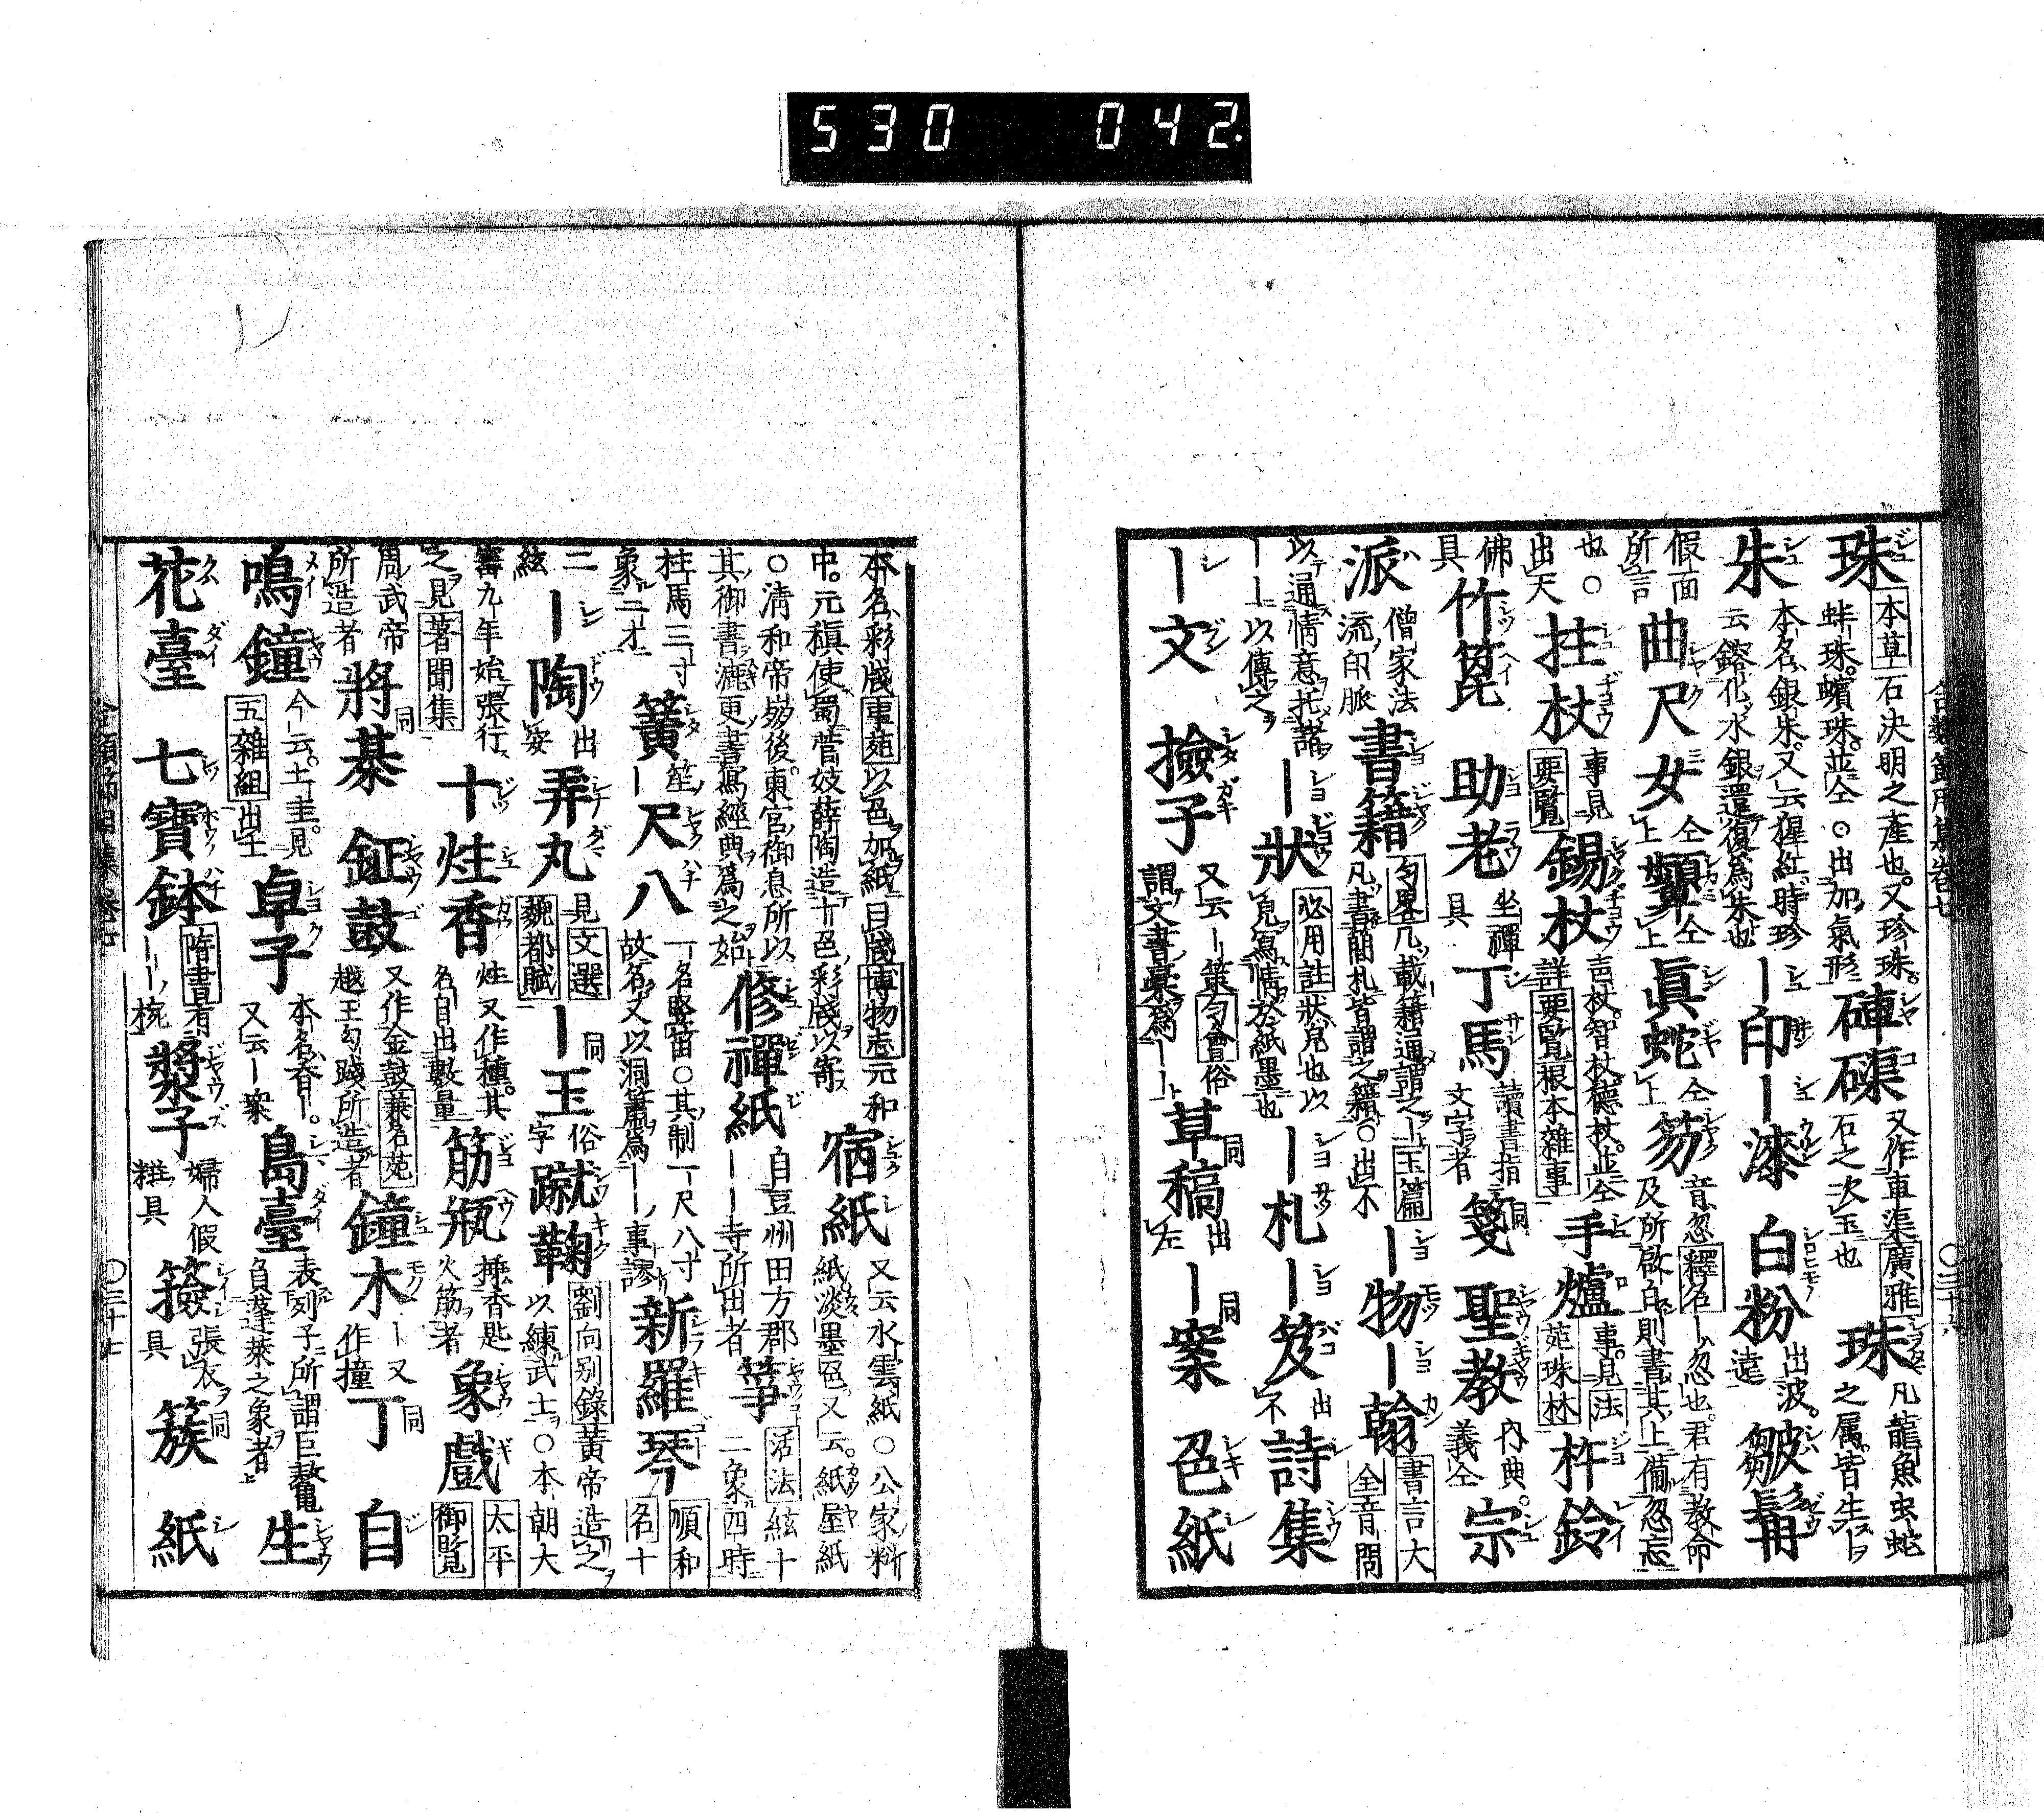 530 042.
珠 本草石決明之產也。又珍珠。蚌珠。蠙珠。並仝○出加氣形 硨磲 又作車渠廣雅石之次玉也 珠 凡龍魚虫蛇之属皆生ー
朱 本名銀朱。又云猩紅時珍云鎔化水銀還復為朱也 ー印 ー漆 白粉 出波。遠 皺髯
假面所言 曲尺 女 仝上 顰 仝上 眞蛇 仝上 笏 音忽釋名ー忽也。君有教命及所啟白則書其上備忽忘
也。○出天 拄杖 事見要覽 錫杖 杖。智杖。德杖。並仝詳要覽根本雜事 手爐 事。見法苑珠林 杵鈴
佛具 竹篦 助老 坐禪具 丁馬 讀書指文字者 笺 同 聖教 內典。義仝 宗
派 僧家法流印脈 書籍 匀畧凡載籍通謂之ー玉篇凡書簡札皆謂之籍○出不 ー物 ー翰 書言大全音問
以通情意托諸ーー以傳之 ー狀 必用註狀皃也以皃寫情於紙墨也 ー札 ー笈 出不 詩集
ー文 撿子 又云ー策匀會俗謂文書稾為ーー 草稿 同出左 ー案 同 色紙
本名彩牋事苑以色加紙曰牋博物志元和中。元稹使蜀營妓薛陶造十色彩牋以寄 宿紙 又云水雲紙○公家料紙淡墨色。又云。紙屋紙
○清和帝崩後。東宮御息所以其御書漉更書寫經典為之始 修禪紙 自豆州田方郡ーー寺所出者 箏 活法絃十二象四時
柱高三寸象三才 簧 笙ー 尺八 一名竪笛○其制一尺八寸故名又以洞簫為ーー事謬 新羅琴 順和名十
二絃 ー陶 出安 弄丸 見文選魏都賦 ー玉 同俗字 蹴鞠 劉向別錄黃帝造之以練武士○本朝大
寶九年始張行之見著聞集 十炷香 炷又作種。其名自出數量 筋瓶 捶香匙火筋者 象戲 太平御覽
周武帝所造者 將棊 同 鉦鼓 又作金鼓兼名苑越王勾踐所造者 鐘木 ー又作撞 丁 同 自
鳴鐘 今ー云。土圭。見五雜組出土 卓子 本名春ー。又云ー 島臺 表列子所謂巨鼇負蓬萊之象者 生
花臺 七寶鉢 隋書有ーーー椀 漿子 婦人假粧具 簽 張衣具 簇 同 紙